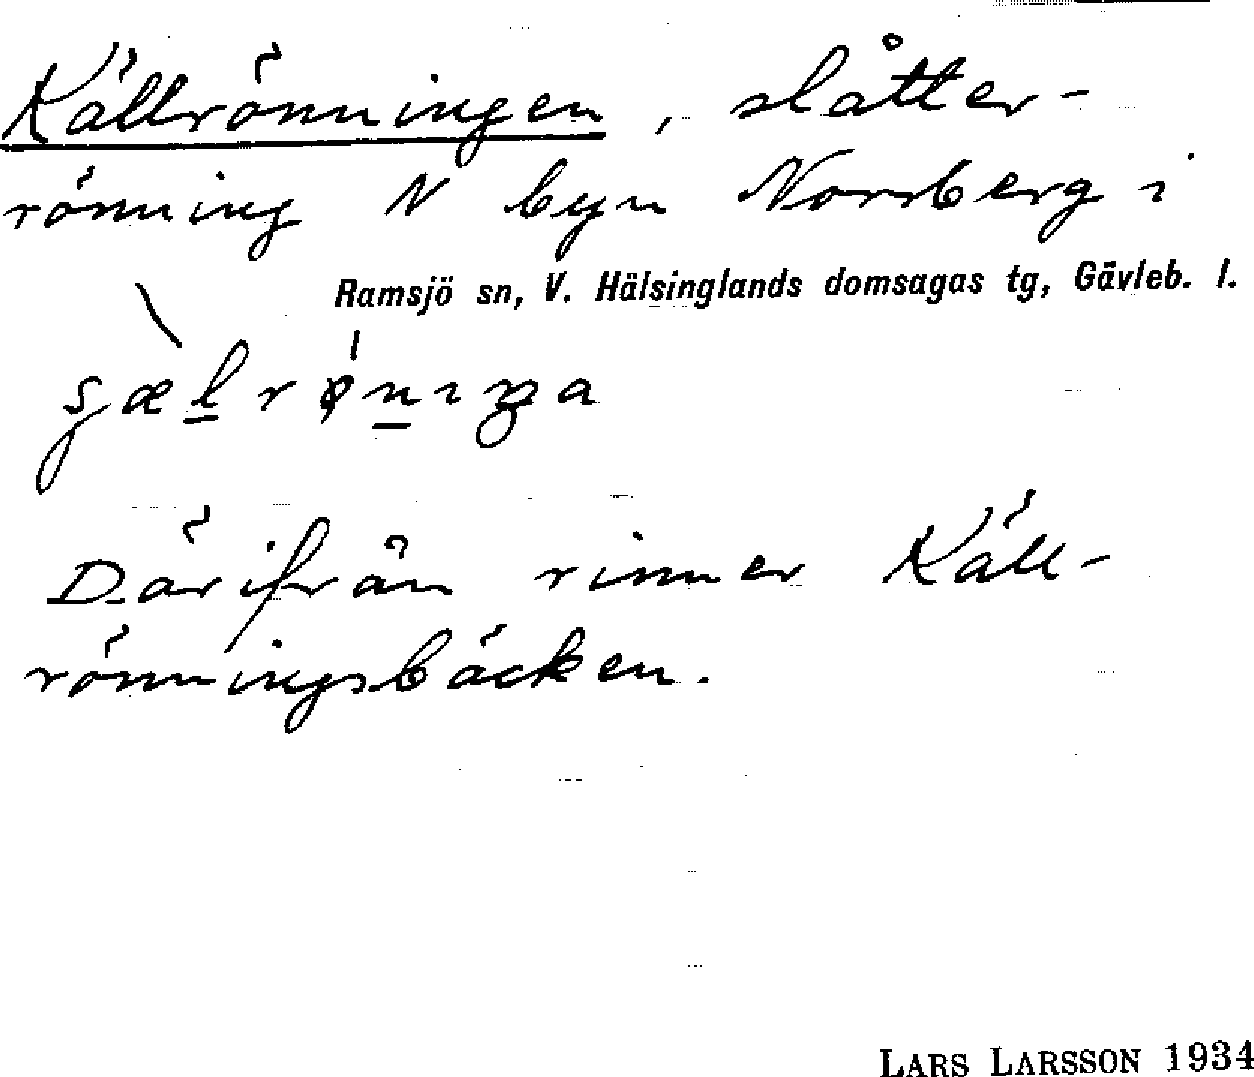 Källrönningen, slåtter-
rönning N byn Norrberg i
Ramsjö sn, V. Hälsinglands domsagas tg, Gävleb. l.
Därifrån rinner Käll-
rönningsbäcken.
LARS LARSSON 1934